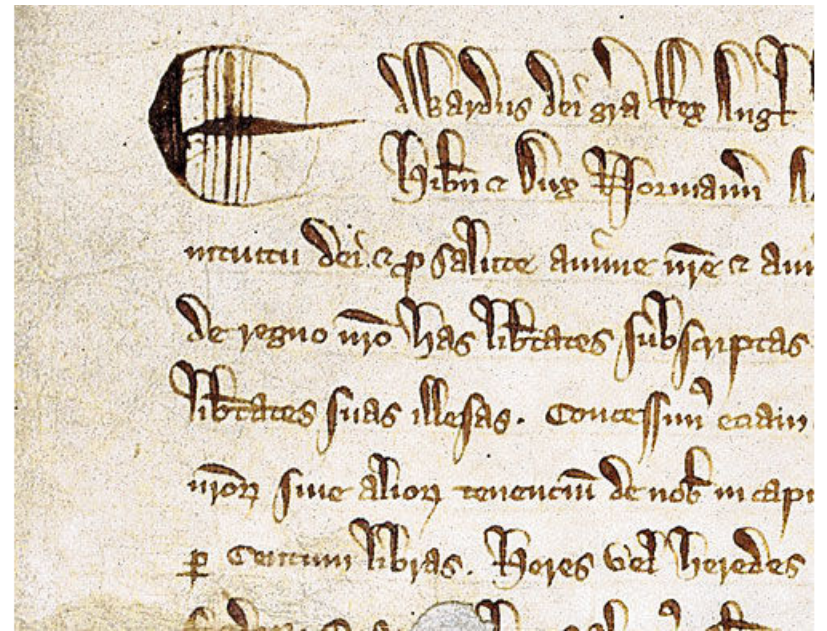 Edwardus dei gra Rex Angl
Hibn ⁊ Dux Normann
intuitu dei ⁊ p salute anime nre ⁊ 
de regno nro has libtates subscriptas
libtates suas illesas. Concessim⁹ eciam
nror̄ siue alior̄ tenenciū de nob in
p Centum libras. Heres vel heredes